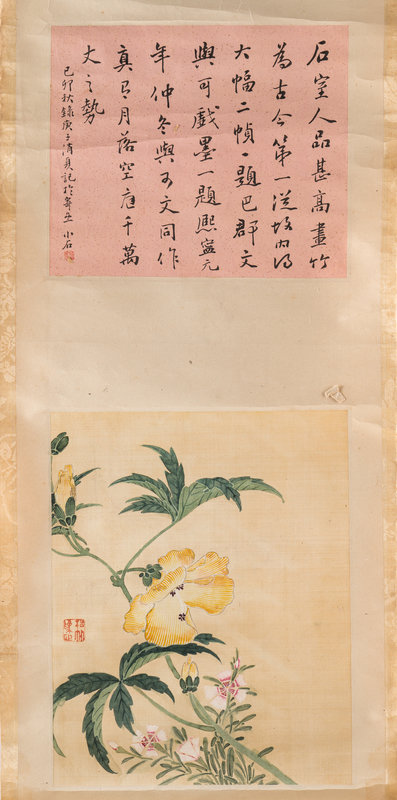 石室人品甚高畫竹
為古今第一從坡內得
大幅二幀一題巴郡文
與可戲墨一題熙寧元
年仲冬與可文同作
真有月落空庭千萬
丈之勢
己卯秋錄庚子消夏記於 小石